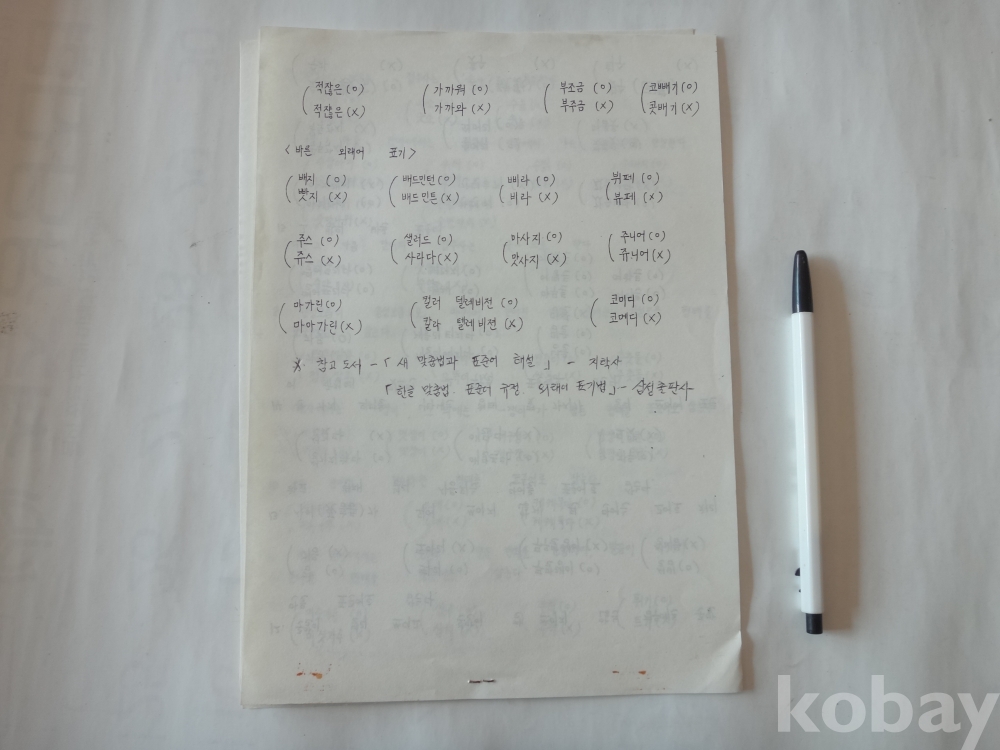 적잖은 (O) 가까워 (O) 부조금 (O) 코빼기 (O)
적잖은 (X) 가까와 (X) 부주금 (X) 콧배기 (X)
< 바른 외래어 표기 >
배지 (O) 배드민턴 (O) 삐라 (O) 뷔페 (O)
뺏지 (X) 배드민튼 (X) 비라 (X) 뷰페 (X)
주스 (O) 샐러드 (O) 마사지 (O) 주니어 (O)
쥬스 (X) 사라다 (X) 맛사지 (X) 쥬니어 (X)
마가린 (O) 컬러 텔레비전 (O) 코미디 (O)
마아가린 (X) 칼라 텔레비젼 (X) 코메디 (X)
※ 참고 도서 - 「새 맞춤법과 표준어 해설」 - 지학사
「한글 맞춤법. 표준어 규정. 외래어 표기법」 - 출판사
kobay